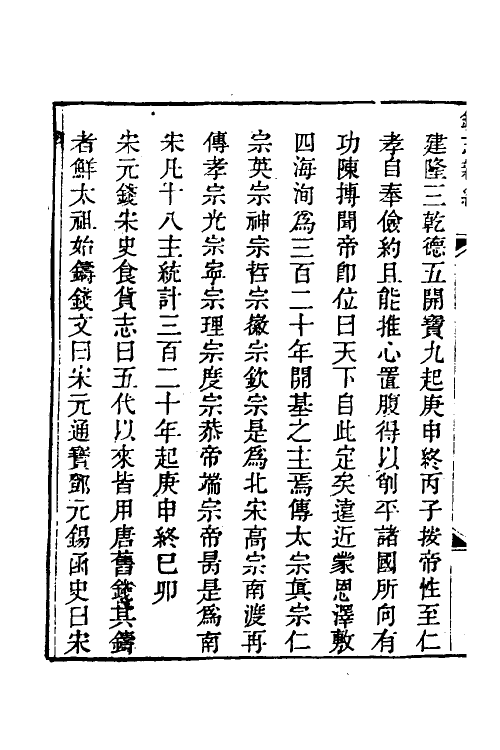 建隆三乾德五開寶九起庚申終丙子按帝性至仁
孝自奉儉約且能推心置腹得以削平諸國所向有
功陳摶聞帝卽位曰天下自此定矣遠近蒙恩澤敷
四海洵爲三百二十年開基之主焉傳太宗眞宗仁
宗英宗神宗哲宗徽宗欽宗是爲北宋高宗南渡再
傳孝宗光宗寧宗理宗度宗恭帝端宗帝昺是爲南
宋凡十八主統計三百二十年起庚申終已卯
宋元錢宋史食貨志曰五代以來皆用唐舊錢其鑄
者鮮太祖始鑄錢文曰宋元通寶鄧元錫函史曰宋